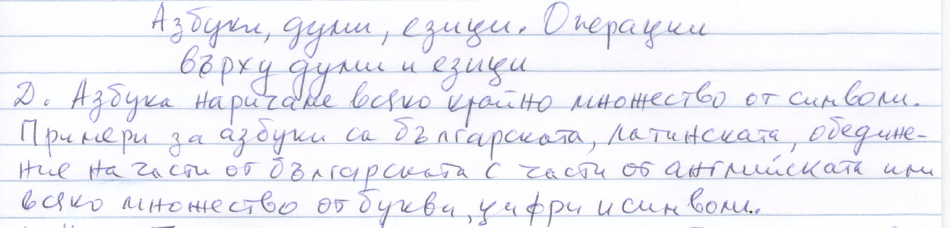 Азбуки, думи, езици. Операции
върху думи и езици
D. Азбука наричаме всяко крайно множество от символи.
Примери за азбуки са българската, латинската, обедине-
ние на части от българската с части от английската или
всяко множество от букви, цифри и символи.